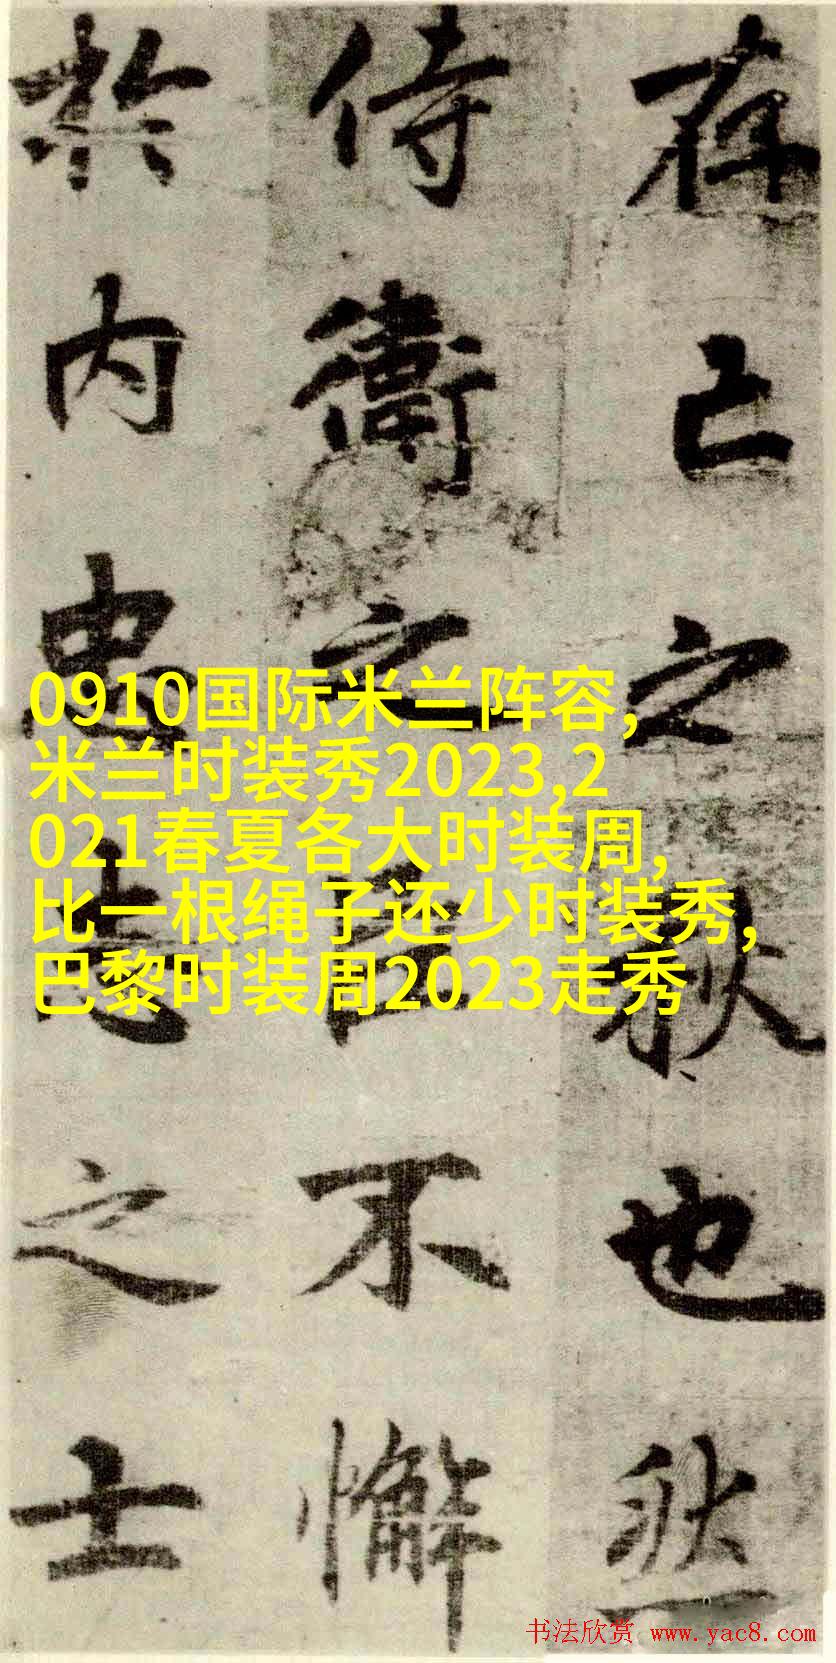 存亡之秋也然
侍衛之臣不懈
於内忠志之士
0910国际米兰阵容,
米兰时装秀2023,2
021春夏各大时装周,
比一根绳子还少时装秀,
巴黎时装周2023走秀
书法欣赏 www.yac8.com